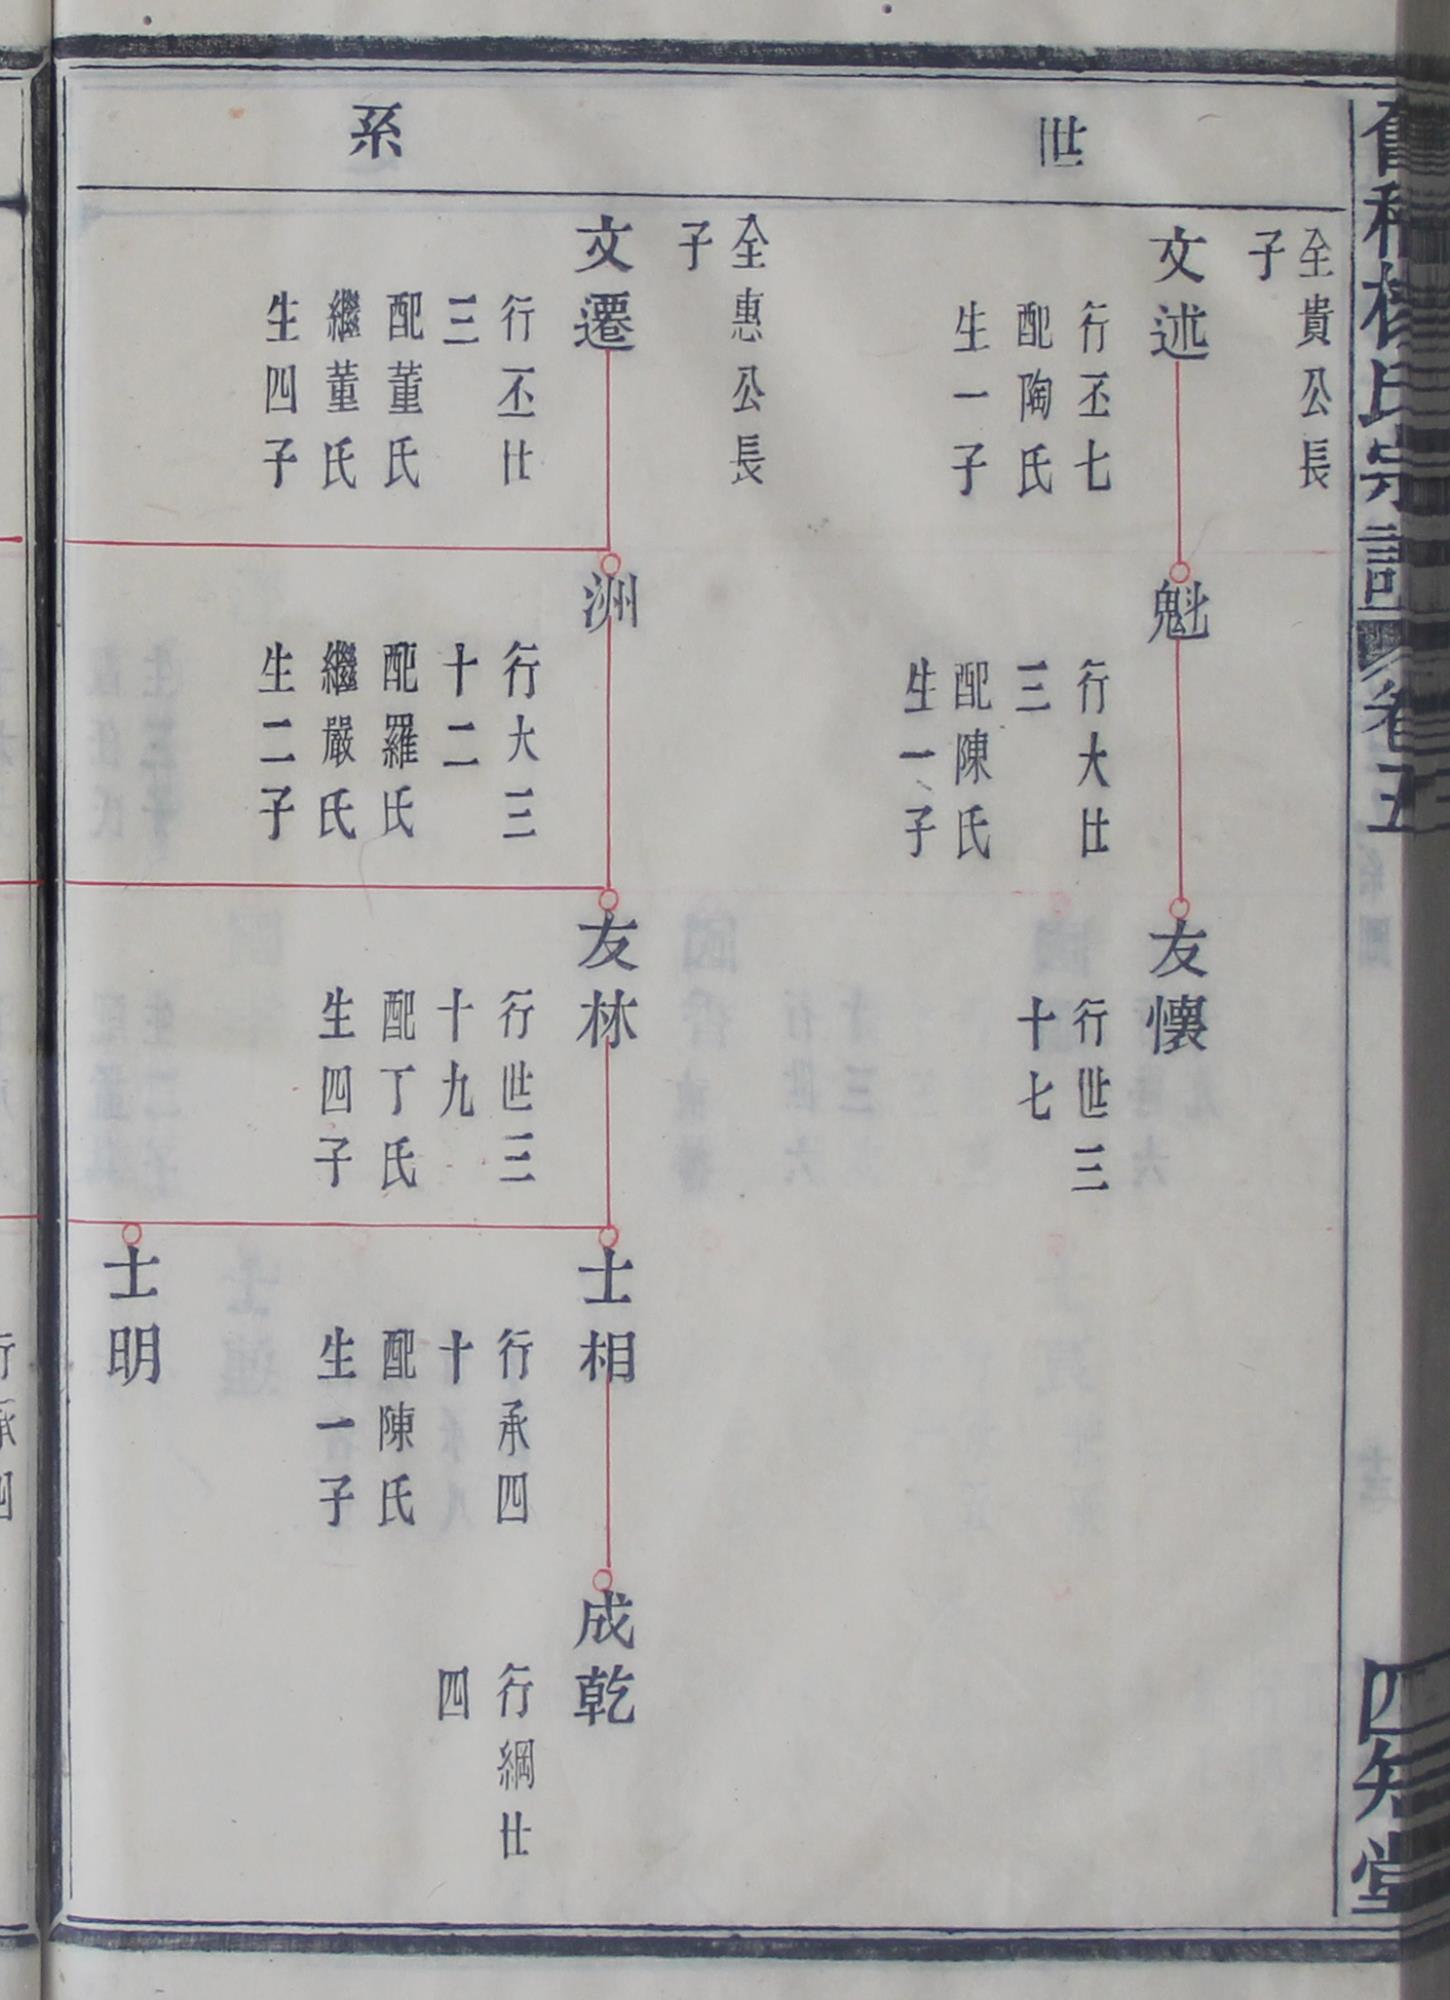 世系
全貴公長
子
文述
行丕七
配陶氏
生一子
魁
行大廿
三
配陳氏
生一子
友懷
行世三
十七
全惠公長
子
文遷
行丕廿
三
配董氏
繼董氏
生四子
洲
行大三
十二
配羅氏
繼嚴氏
生二子
友林
行世三
十九
配丁氏
生四子
士相
行承四
十
配陳氏
生一子
成乾
行綱廿
四
士明
行承四
氏宗譜
卷五
四知堂